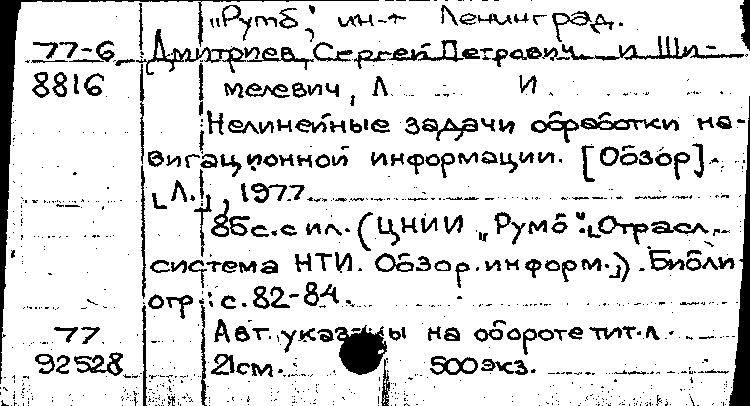 „Румб", ин-т Ленинград.
77-6 Дмитриев, Сергей Петрович и Ши-
8816 мелевич, Л И.
Нелинейные задачи обработки на-
вигационной информации. [Обзор].
[Л.], 1977.
85с. с ил. (ЦНИИ „Румб". [Отрасл.
система НТИ. Обзор. информ.]). Библи-
огр.: с. 82-84.
77 Авт. указаны на обороте тит. л.
92528 21см. 500 экз.